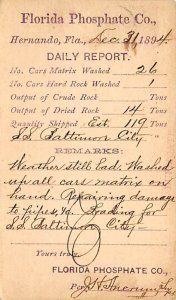 Florida Phosphate Co.,
Hernando, Fla., Dec. 31 1894
DAILY REPORT.
No. Cars Matrix Washed 26
No. Cars Hard Rock Washed 1
Output of Crude Rock Tons
Output of Dried Rock 14 Tons
Quantity Shipped Est. 119 Tons
S.S. Baltimore City
REMARKS:
Weather still bad. Washed
up all cars matrix on
hand. Repairing damage
to pipes, &c. Loading for
S.S. Baltimore City
Yours truly,
FLORIDA PHOSPHATE CO.,
Per J.H.